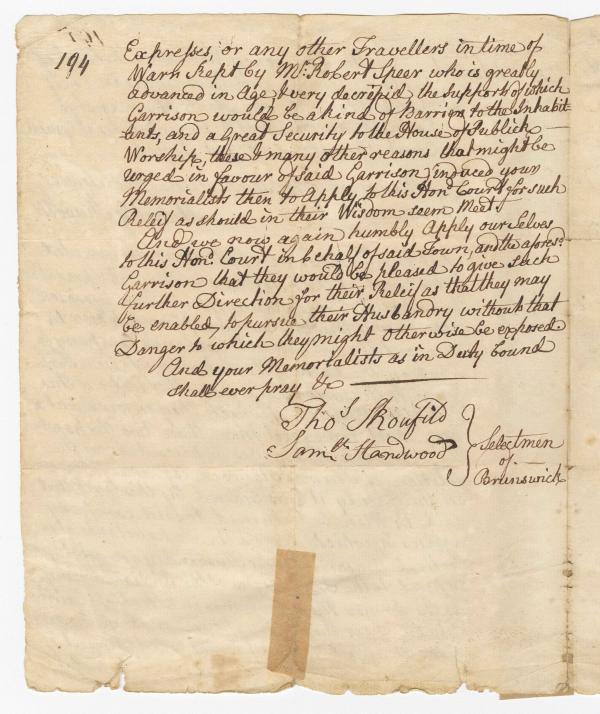 194
Expresses, or any other Travellers in time of
Warn kept by Mr. Robert Speer who is greatly
advanced in Age & very decripid, the support of which
Garrison would be a kind of Barrier to the Inhabit
ants, and a Great Security to the House of Publick
Worship, these & many other reasons that might be
urged in favour of said Garrison, induced your
Memorialists then to Apply to this Hond. Court for such
Releif as should in their Wisdom seem Meet.
And we now again humbly Apply our Selves
to this Hond. Court in behalf of said Town, and the afores.d
Garrison that they would be pleased to give such
further Direction for their Releif as that they may
be enabled, to pursue their Husbandry without that
Danger to which they might otherwise be exposed
And your Memorialists as in Duty bound
shall ever pray &c
Thos Skoufild
Samll. Standwood
Selectmen
of
Brunswick